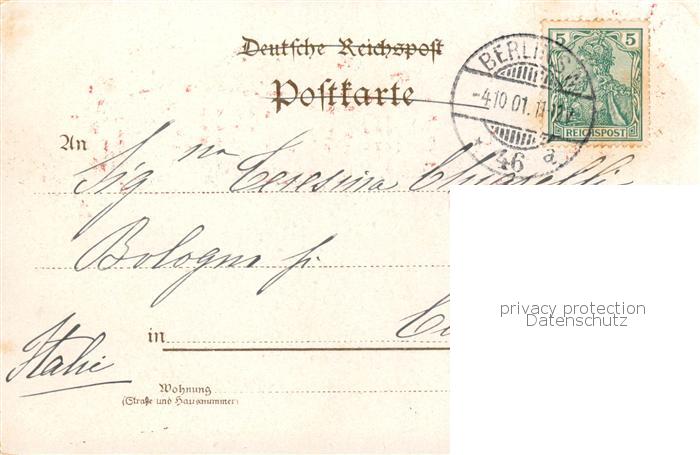 Deutsche Reichspost
Postkarte
5 5
REICHSPOST
BERLIN S.W.
-4.10.01.11-12
* 46 a.
An
Sig na Teresina
Bologna
privacy protection
Datenschutz
in
Italie
Wohnung
(Straße und Hausnummer)